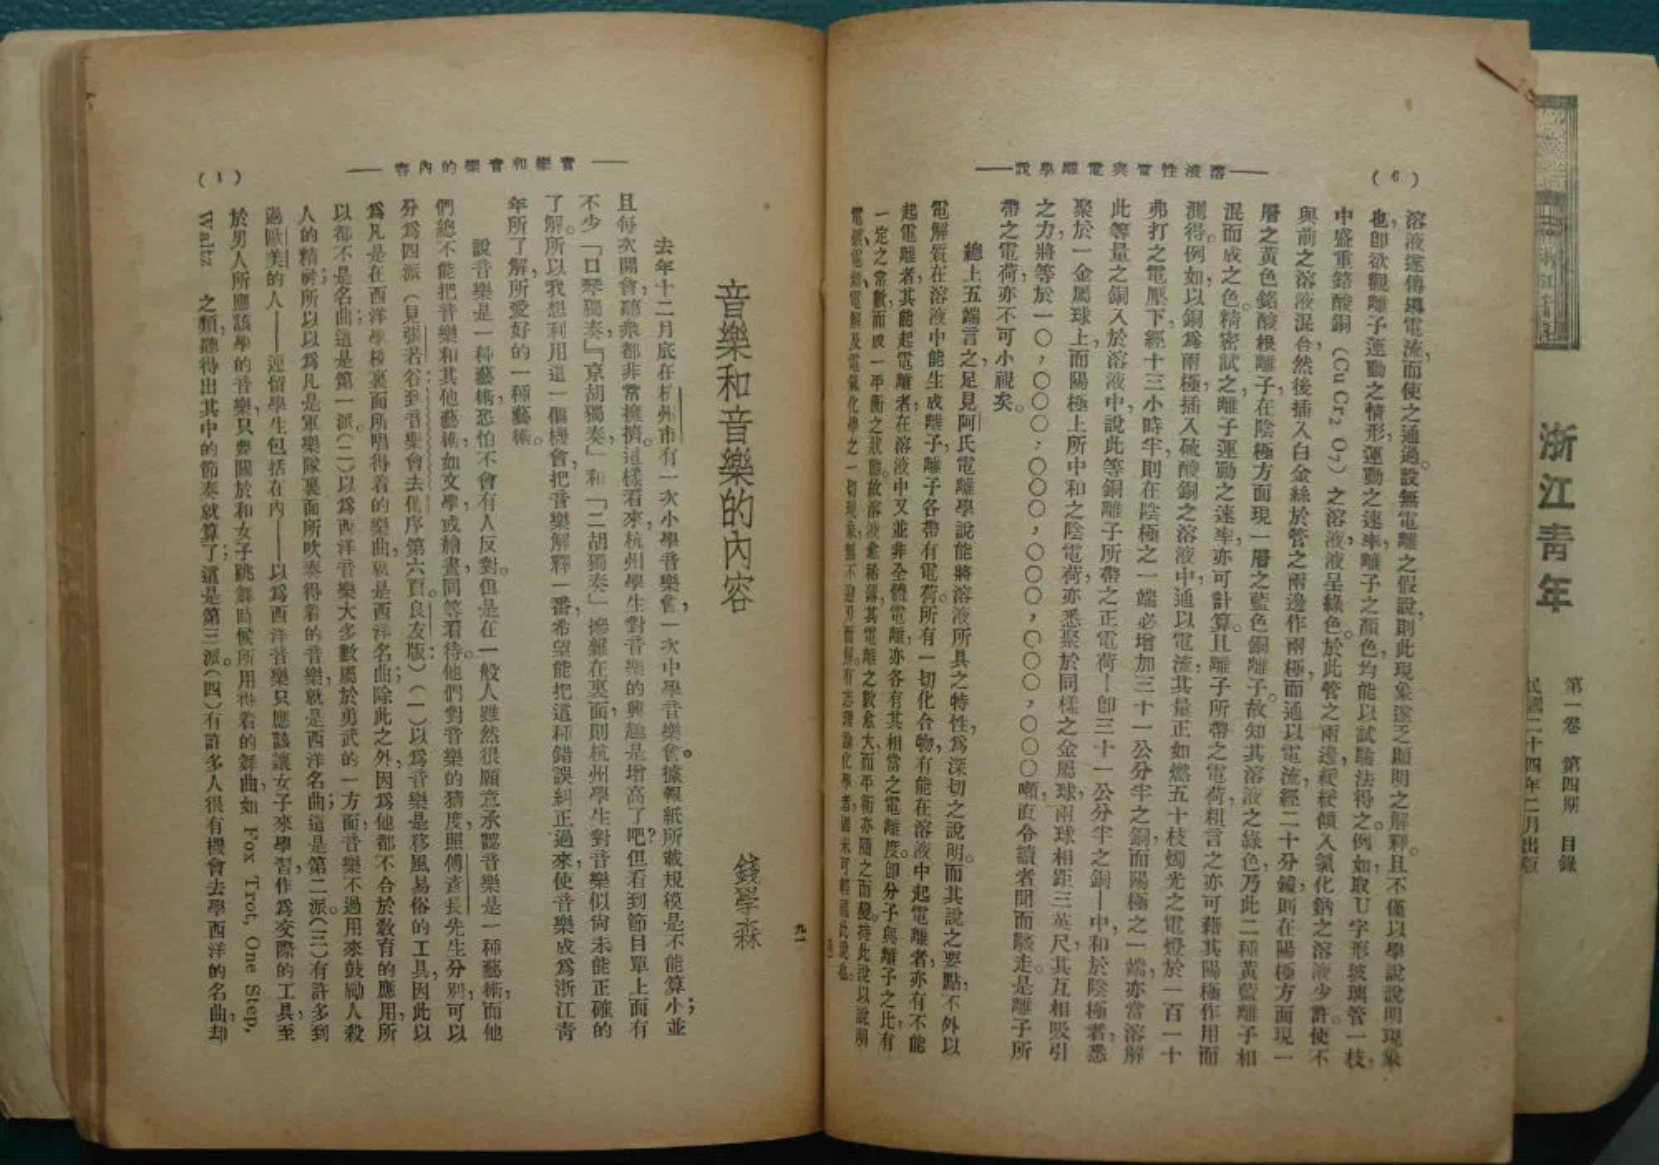 浙江青年
第一卷 第四期 目錄
民國二十四年二月出版
(6)
——溶液性質與電離學說——
溶液遂傳導電流，而使之通過。設無電離之假說，則此現象遂乏顯明之解釋。且不僅以學說說明現象
也，卽欲觀離子運動之情形，運動之速率，離子之顏色，均能以試驗法得之。例如取U字形玻璃管一枝，
中盛重鉻酸銅（Cu Cr₂ O₇）之溶液，液呈綠色。於此管之兩邊，緩緩傾入氯化鈉之溶液少許，使不
與前之溶液混合，然後插入白金絲於管之兩邊作兩極，而通以電流，經二十分鐘，則在陽極方面現一
層之黃色鉻酸根離子，在陰極方面現一層之藍色銅離子。故知其溶液之綠色，乃此二種黃藍離子相
混而成之色。精密試之，離子運動之速率，亦可計算。且離子所帶之電荷，粗言之亦可藉其陽極作用而
測得。例如以銅爲兩極，插入硫酸銅之溶液中，通以電流，其量正如燃五十枝燭光之電燈於一百一十
弗打之電壓下，經十三小時半，則在陰極之一端必增加三十一公分半之銅，而陽極之一端，亦當溶解
此等量之銅入於溶液中，說此等銅離子所帶之正電荷—卽三十一公分半之銅—中，和於陰極者，悉
聚於一金屬球上，而陽極上所中和之陰電荷，亦悉聚於同樣之金屬球，兩球相距三英尺，其互相吸引
之力將等於一〇，〇〇〇；〇〇〇，〇〇〇，〇〇〇，〇〇〇噸，直令讀者聞而駭走。是離子所
帶之電荷，亦不可小視矣。
總上五端言之，足見阿氏電離學說能將溶液所具之特性，爲深切之說明。而其說之要點，不外以
電解質在溶液中能生成離子，離子各帶有電荷。所有一切化合物，有能在溶液中起電離者，亦有不能
起電離者，其能起電離者，在溶液中又並非全體電離，亦各有其相當之電離度。卽分子與離子之比有
一定之常數，而成一平衡之狀態。故溶液愈稀薄，其電離之數愈大，而平衡亦隨之而變。持此說以說明
九一
音樂和音樂的內容
錢學森
去年十二月底在杭州市有一次小學音樂會，一次中學音樂會。據報紙所載，規模是不能算小；並
且每次開會，聽衆都非常擁擠。這樣看來，杭州學生對音樂的興趣是增高了吧？但看到節目單上面有
不少「口琴獨奏」，「京胡獨奏」和「二胡獨奏」摻雜在裏面，則杭州學生對音樂似尙未能正確的
了解。所以我想利用這一個機會，把音樂解釋一番，希望能把這種錯誤糾正過來，使音樂成爲浙江靑
年所了解，所愛好的一種藝術。
說音樂是一種藝術，恐怕不會有人反對。但是在一般人雖然很願意承認音樂是一種藝術，而他
們總不能把音樂和其他藝術，如文學，或繪畫，同等看待。他們對音樂的猜度，照傅彥長先生分別，可以
分爲四派（見張若谷：到音樂會去代序第六頁。良友版）：（一）以爲音樂是移風易俗的工具，因此以
爲凡是在西洋學校裏面所唱得着的樂曲，就是西洋名曲；除此之外，因爲他都不合於教育的應用，所
以都不是名曲；這是第一派。（二）以爲西洋音樂大多數屬於勇武的一方面，音樂不過用來鼓勵人殺
人的精神；所以以爲凡是軍樂隊裏面所吹奏得着的音樂，就是西洋名曲；這是第二派。（三）有許多到
過歐美的人——連留學生包括在內——以爲西洋音樂只應該讓女子來學習，作爲交際的工具，至
於男人所應該學的音樂，只要關於和女子跳舞時候所用得着的舞曲，如 Fox Trot, One Step,
Waltz 之類，聽得出其中的節奏就算了；這是第三派。（四）有許多人很有機會去學西洋的名曲，却
——音樂和音樂的內容——
(1)